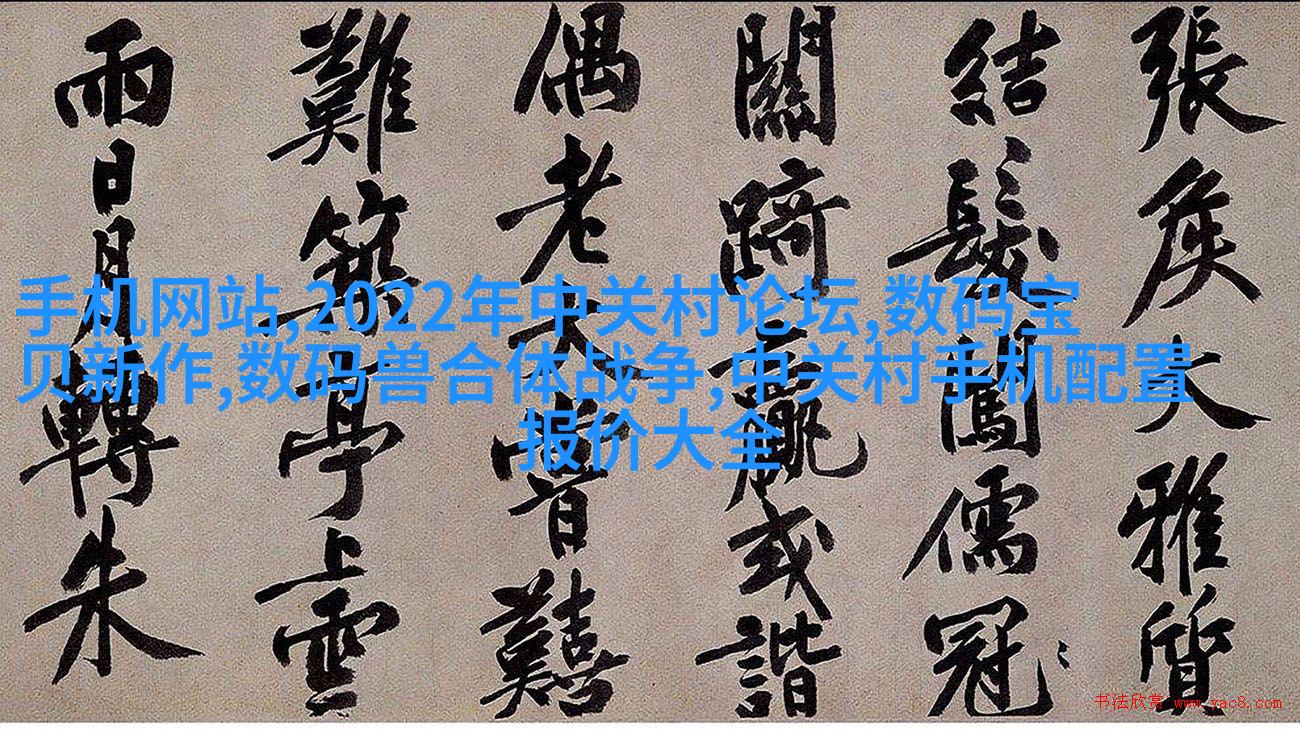 張矦大雅質
結髮儒冠
關踦或諧
偶老大嘗囏
難築亭上雲
雨日月轉朱
手机网站,2022年中关村论坛,数码宝
贝新作,数码兽合体战争,中关村手机配置
报价大全
书法欣赏 www.yac8.com